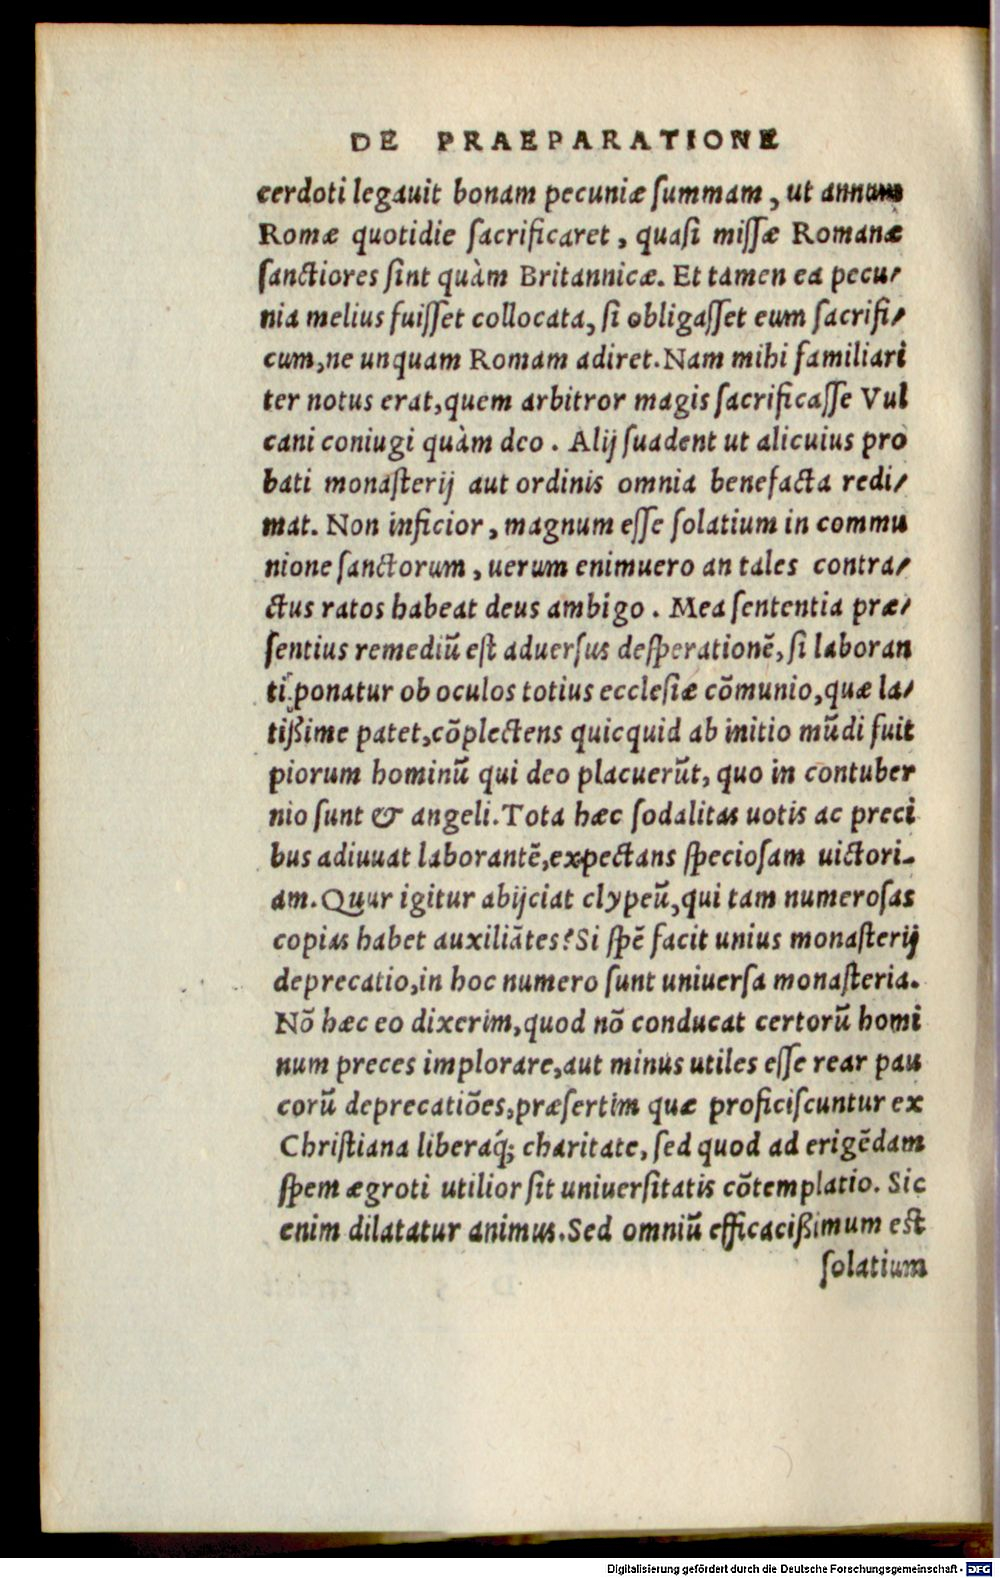 DE PRAEPARATIONE
cerdoti legauit bonam pecuniæ ſummam, ut annum
Romæ quotidie ſacrificaret, quaſi miſſæ Romanæ
ſanctiores ſint quàm Britannicæ. Et tamen ea pecu/
nia melius fuiſſet collocata, ſi obligaſſet eum ſacrifi/
cum, ne unquam Romam adiret. Nam mihi familiari
ter notus erat, quem arbitror magis ſacrificaſſe Vul
cani coniugi quàm deo. Alij ſuadent ut alicuius pro
bati monaſterij aut ordinis omnia benefacta redi/
mat. Non inficior, magnum eſſe ſolatium in commu
nione ſanctorum, uerum enimuero an tales contra/
ctus ratos habeat deus ambigo. Mea ſententia præ/
ſentius remediũ eſt aduerſus deſperationẽ, ſi laboran
ti ponatur ob oculos totius eccleſiæ cõmunio, quæ la/
tißime patet, cõplectens quicquid ab initio mũdi fuit
piorum hominũ qui deo placuerũt, quo in contuber
nio ſunt & angeli. Tota hæc ſodalitas uotis ac preci
bus adiuuat laborantẽ, expectans ſpecioſam uictori-
am. Quur igitur abijciat clypeũ, qui tam numeroſas
copias habet auxiliãtes? Si ſpẽ facit unius monaſterij
deprecatio, in hoc numero ſunt uniuerſa monaſteria.
Nõ hæc eo dixerim, quod nõ conducat certorũ homi
num preces implorare, aut minus utiles eſſe rear pau
corũ deprecatiões, præſertim quæ proficiſcuntur ex
Chriſtiana liberaq́; charitate, ſed quod ad erigẽdam
ſpem ægroti utilior ſit uniuerſitatis cõtemplatio. Sic
enim dilatatur animus. Sed omniũ efficacißimum eſt
ſolatium
Digitalisierung gefördert durch die Deutsche Forschungsgemeinschaft - DFG